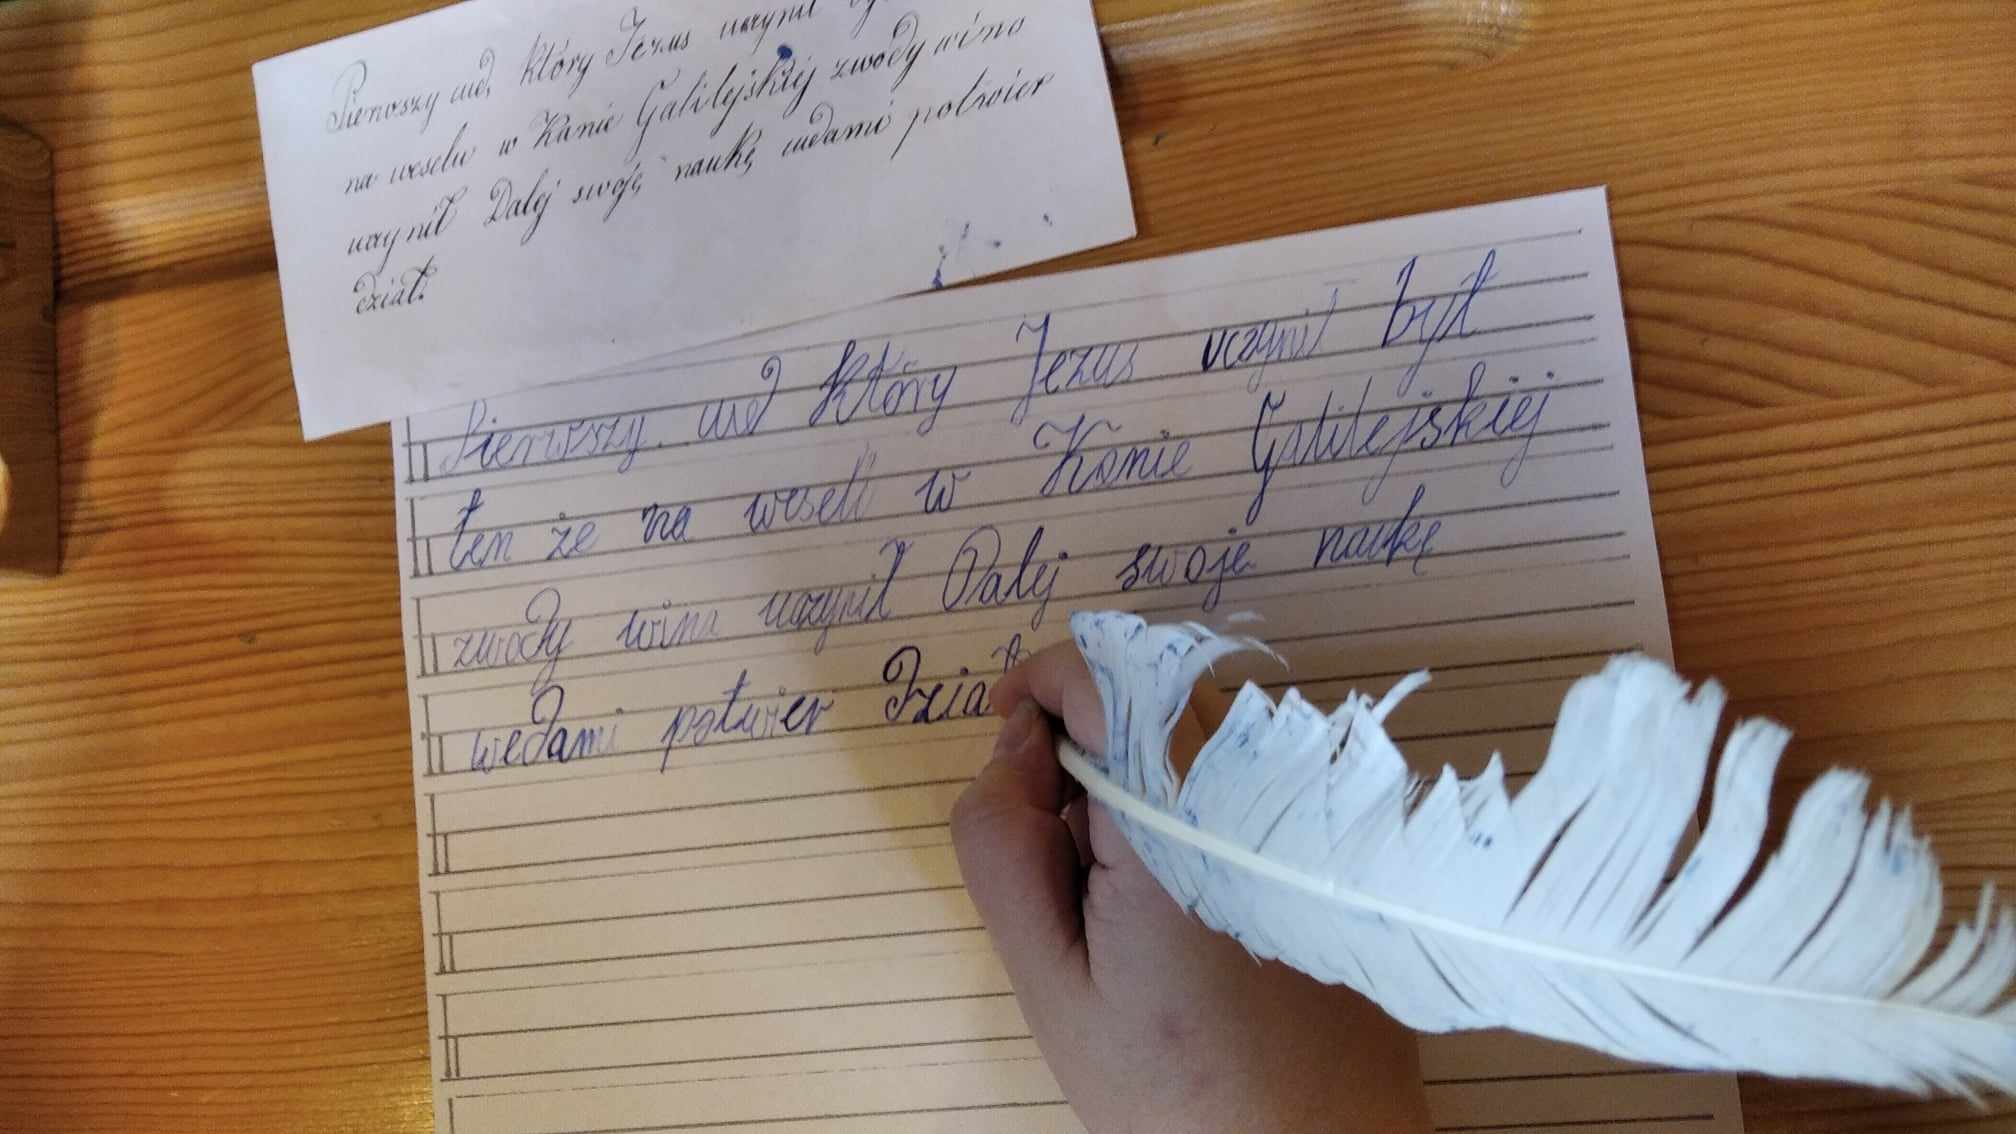 Pierwszy cud, który Jezus uczynił
na weselu w Kanie Galilejskiej zwody wino
uczynił Dalej swoję naukę cudami potwier
dział.
Pierwszy cud który Jezus uczynił był
ten że na weseli w Kanie Galilejskiej
zwody wina uczynił Dalej swoje naukę
wedami potwier Dział